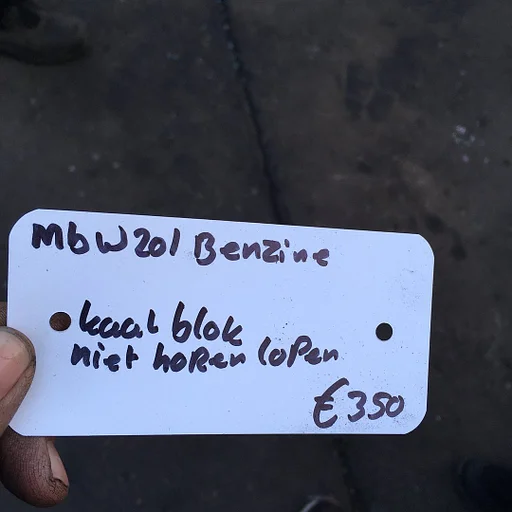 MbW201 Benzine
kaal blok
niet hoRen loPen
€350